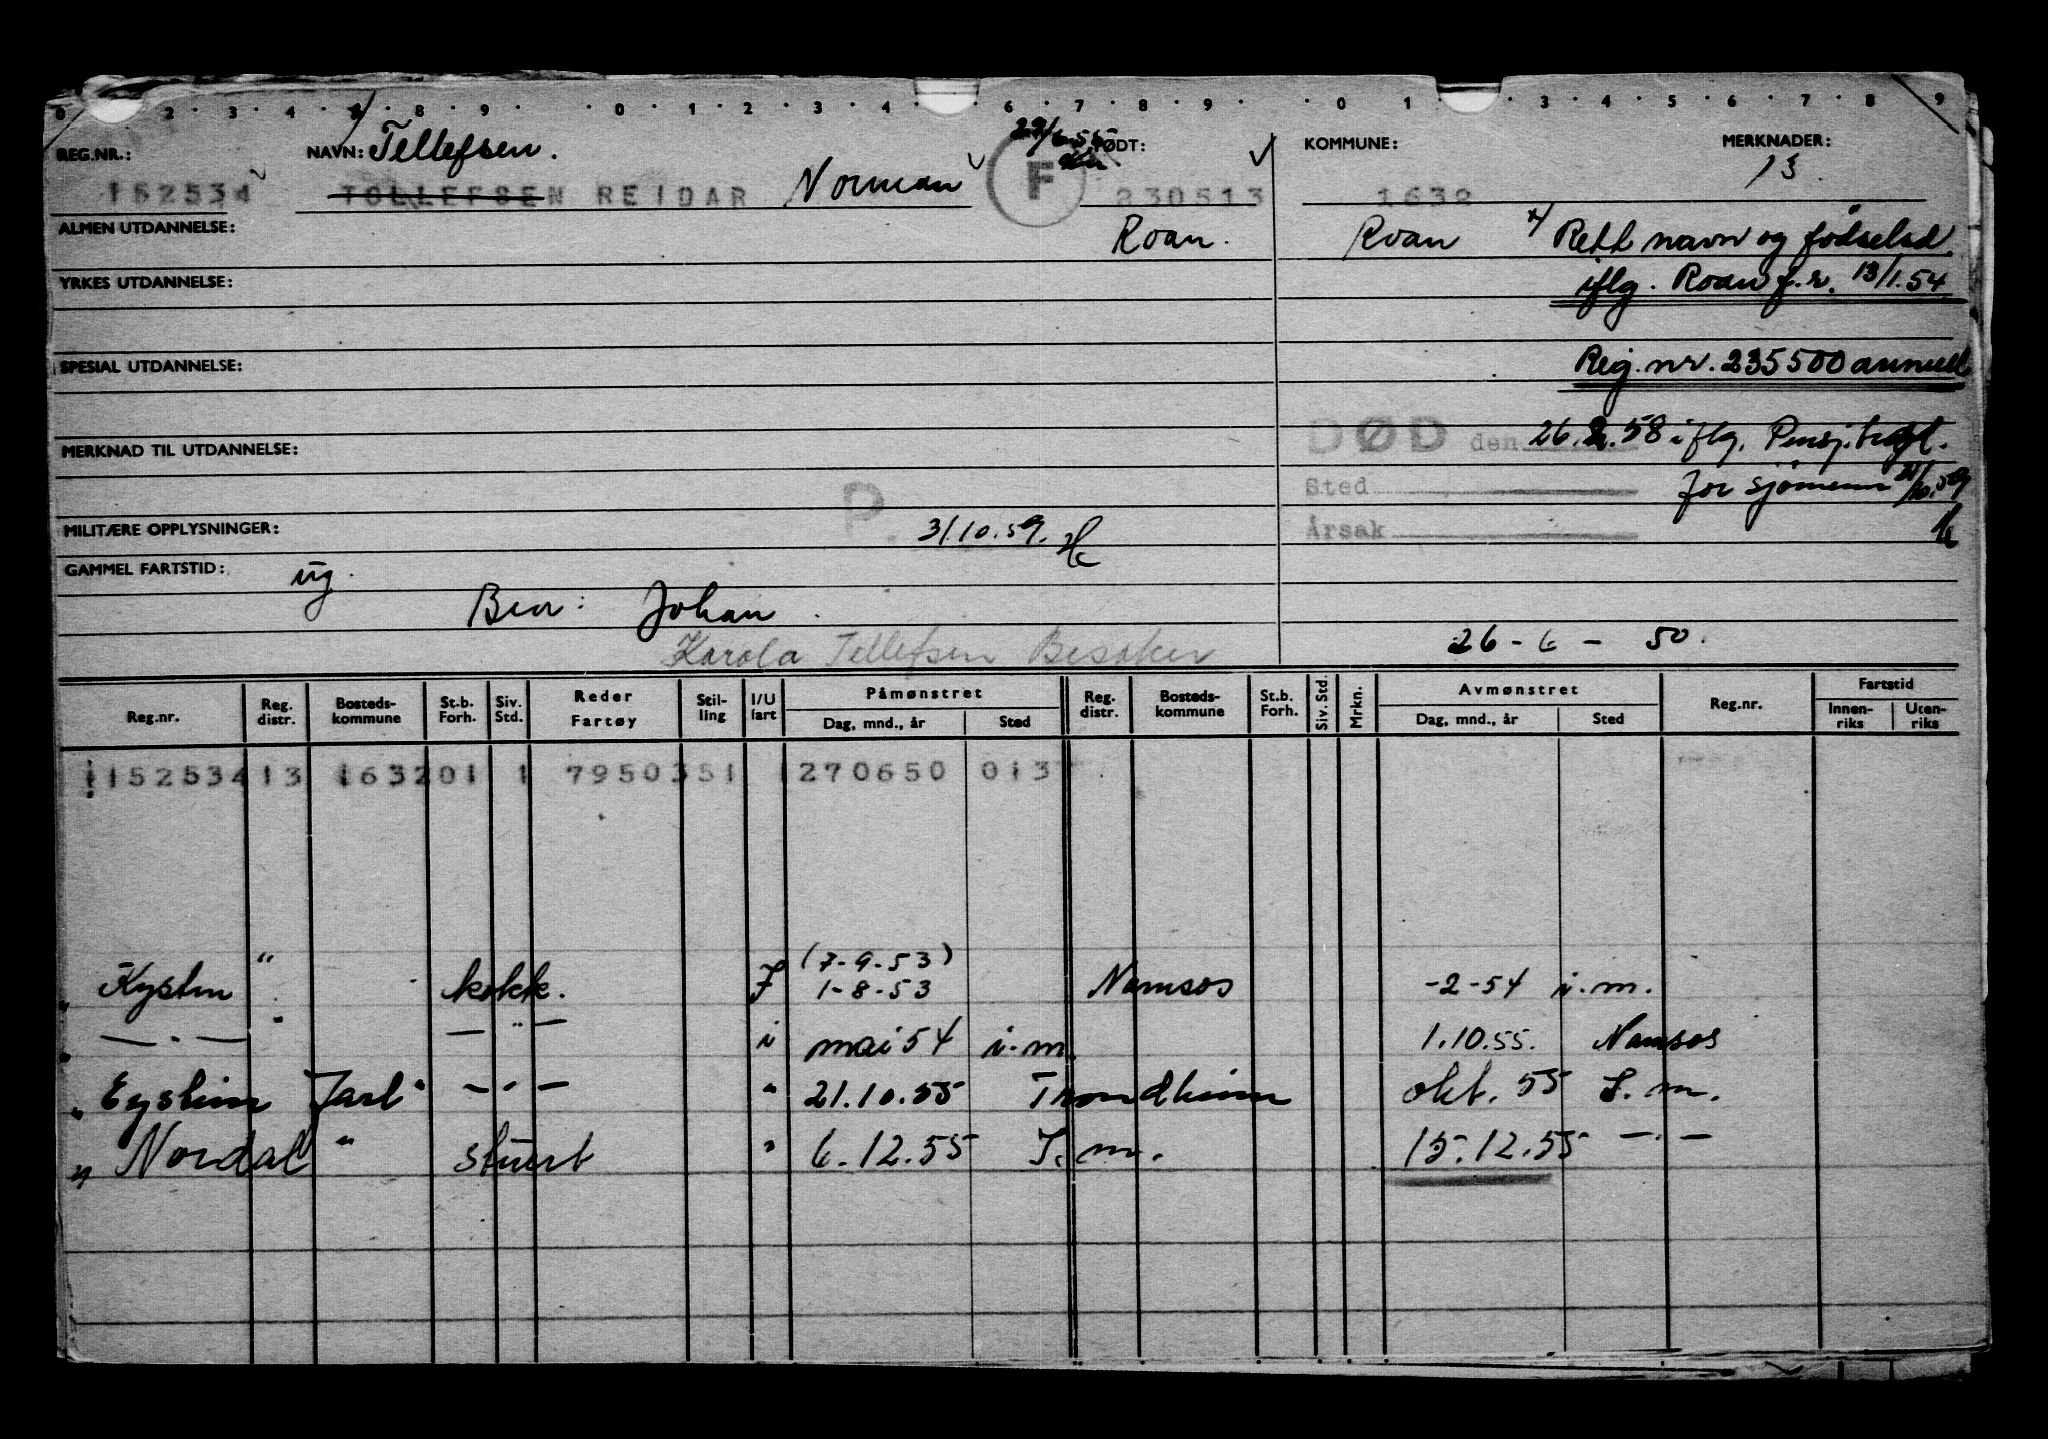 0 2 3 4 8 9 0 1 2 3 4 6 7 8 9 0 1 3 4 5 6 7 8 9
REG.NR.: NAVN: Tellefsen. FØDT: KOMMUNE: MERKNADER:
13
152534 TOLLEFSEN REIDAR Norman F 230513 1632
ALMEN UTDANNELSE: Roan. Roan x) Rett navn og fødselsd
YRKES UTDANNELSE: iflg. Roan f.r. 13/1.54
SPESIAL UTDANNELSE: Reg. nr. 235500 annull
MERKNAD TIL UTDANNELSE: DØD den 26.2.58 iflg. Pensj.trygd.
Sted for sjømenn
MILITÆRE OPPLYSNINGER: P. 31/10.59. Årsak
GAMMEL FARTSTID: ug.
Bror: Johan
Karola Tellefsen Besaker 26-6-50.
Reg.nr. Reg. distr. Bosteds-kommune St.b. Forh. Siv. Std. Reder Fartøy Stil-ling I/U fart Påmønstret Dag, mnd., år Sted Reg. distr. Bosteds-kommune St.b. Forh. Siv. Std. Mrkn. Avmønstret Dag, mnd., år Sted Reg.nr. Fartstid Innen-riks Uten-riks
1152534 13 163201 1 7950351 1 270650 013
(7-9-53)
" Kysten " kokk. I 1-8-53 Namsos -2-54 i.m.
" — . — " — " — i mai 54 i.m. 1.10.55. Namsos
" Eystein Jarl " — " — " 21.10.55 Trondheim okt. 55 I.m.
" Nordal " stuert " 6.12.55 I.m. 15.12.55 — . —